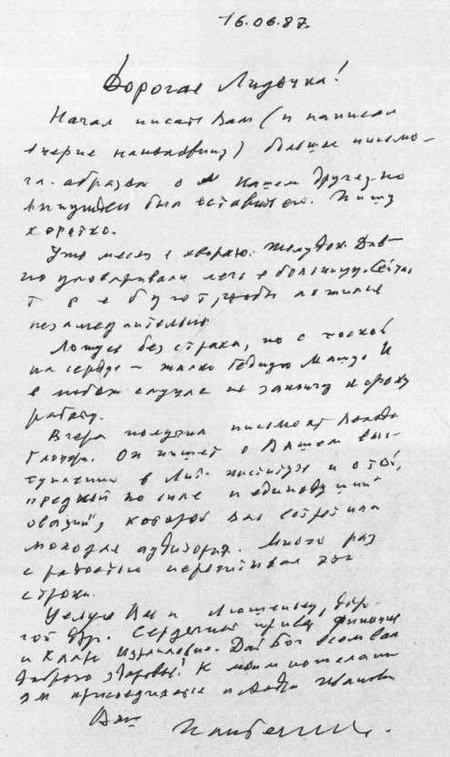 16.06.87.
Дорогая Лидочка!
Начал писать Вам (и написал
вчерне наполовину) большое письмо –
гл. образом о нашем друге, но
вынужден был оставить его. Пишу
коротко.
Уже месяц я хвораю. Желудок. Дав-
но уговаривали лечь в больницу. Сейчас
требуют, чтобы ложился
незамедлительно.
Ложусь без страха, но с тоской
на сердце – жалко бедную Машу. И
в любом случае не закончу к сроку
работу.
Вчера получил письмо от Володи
Глоцера. Он пишет о Вашем выс-
туплении в Лит. институте и о той,
редкой по силе и единодушию
овации, которой Вас встретила
молодая аудитория. Много раз
с радостью перечитывал эти
строки.
Целую Вас и Люшеньку, доро-
гой друг. Сердечный привет Финочке
и Кларе Израилевне. Дай Бог всем вам
доброго здоровья! К моим пожелани-
ям присоединяется и
Ваш